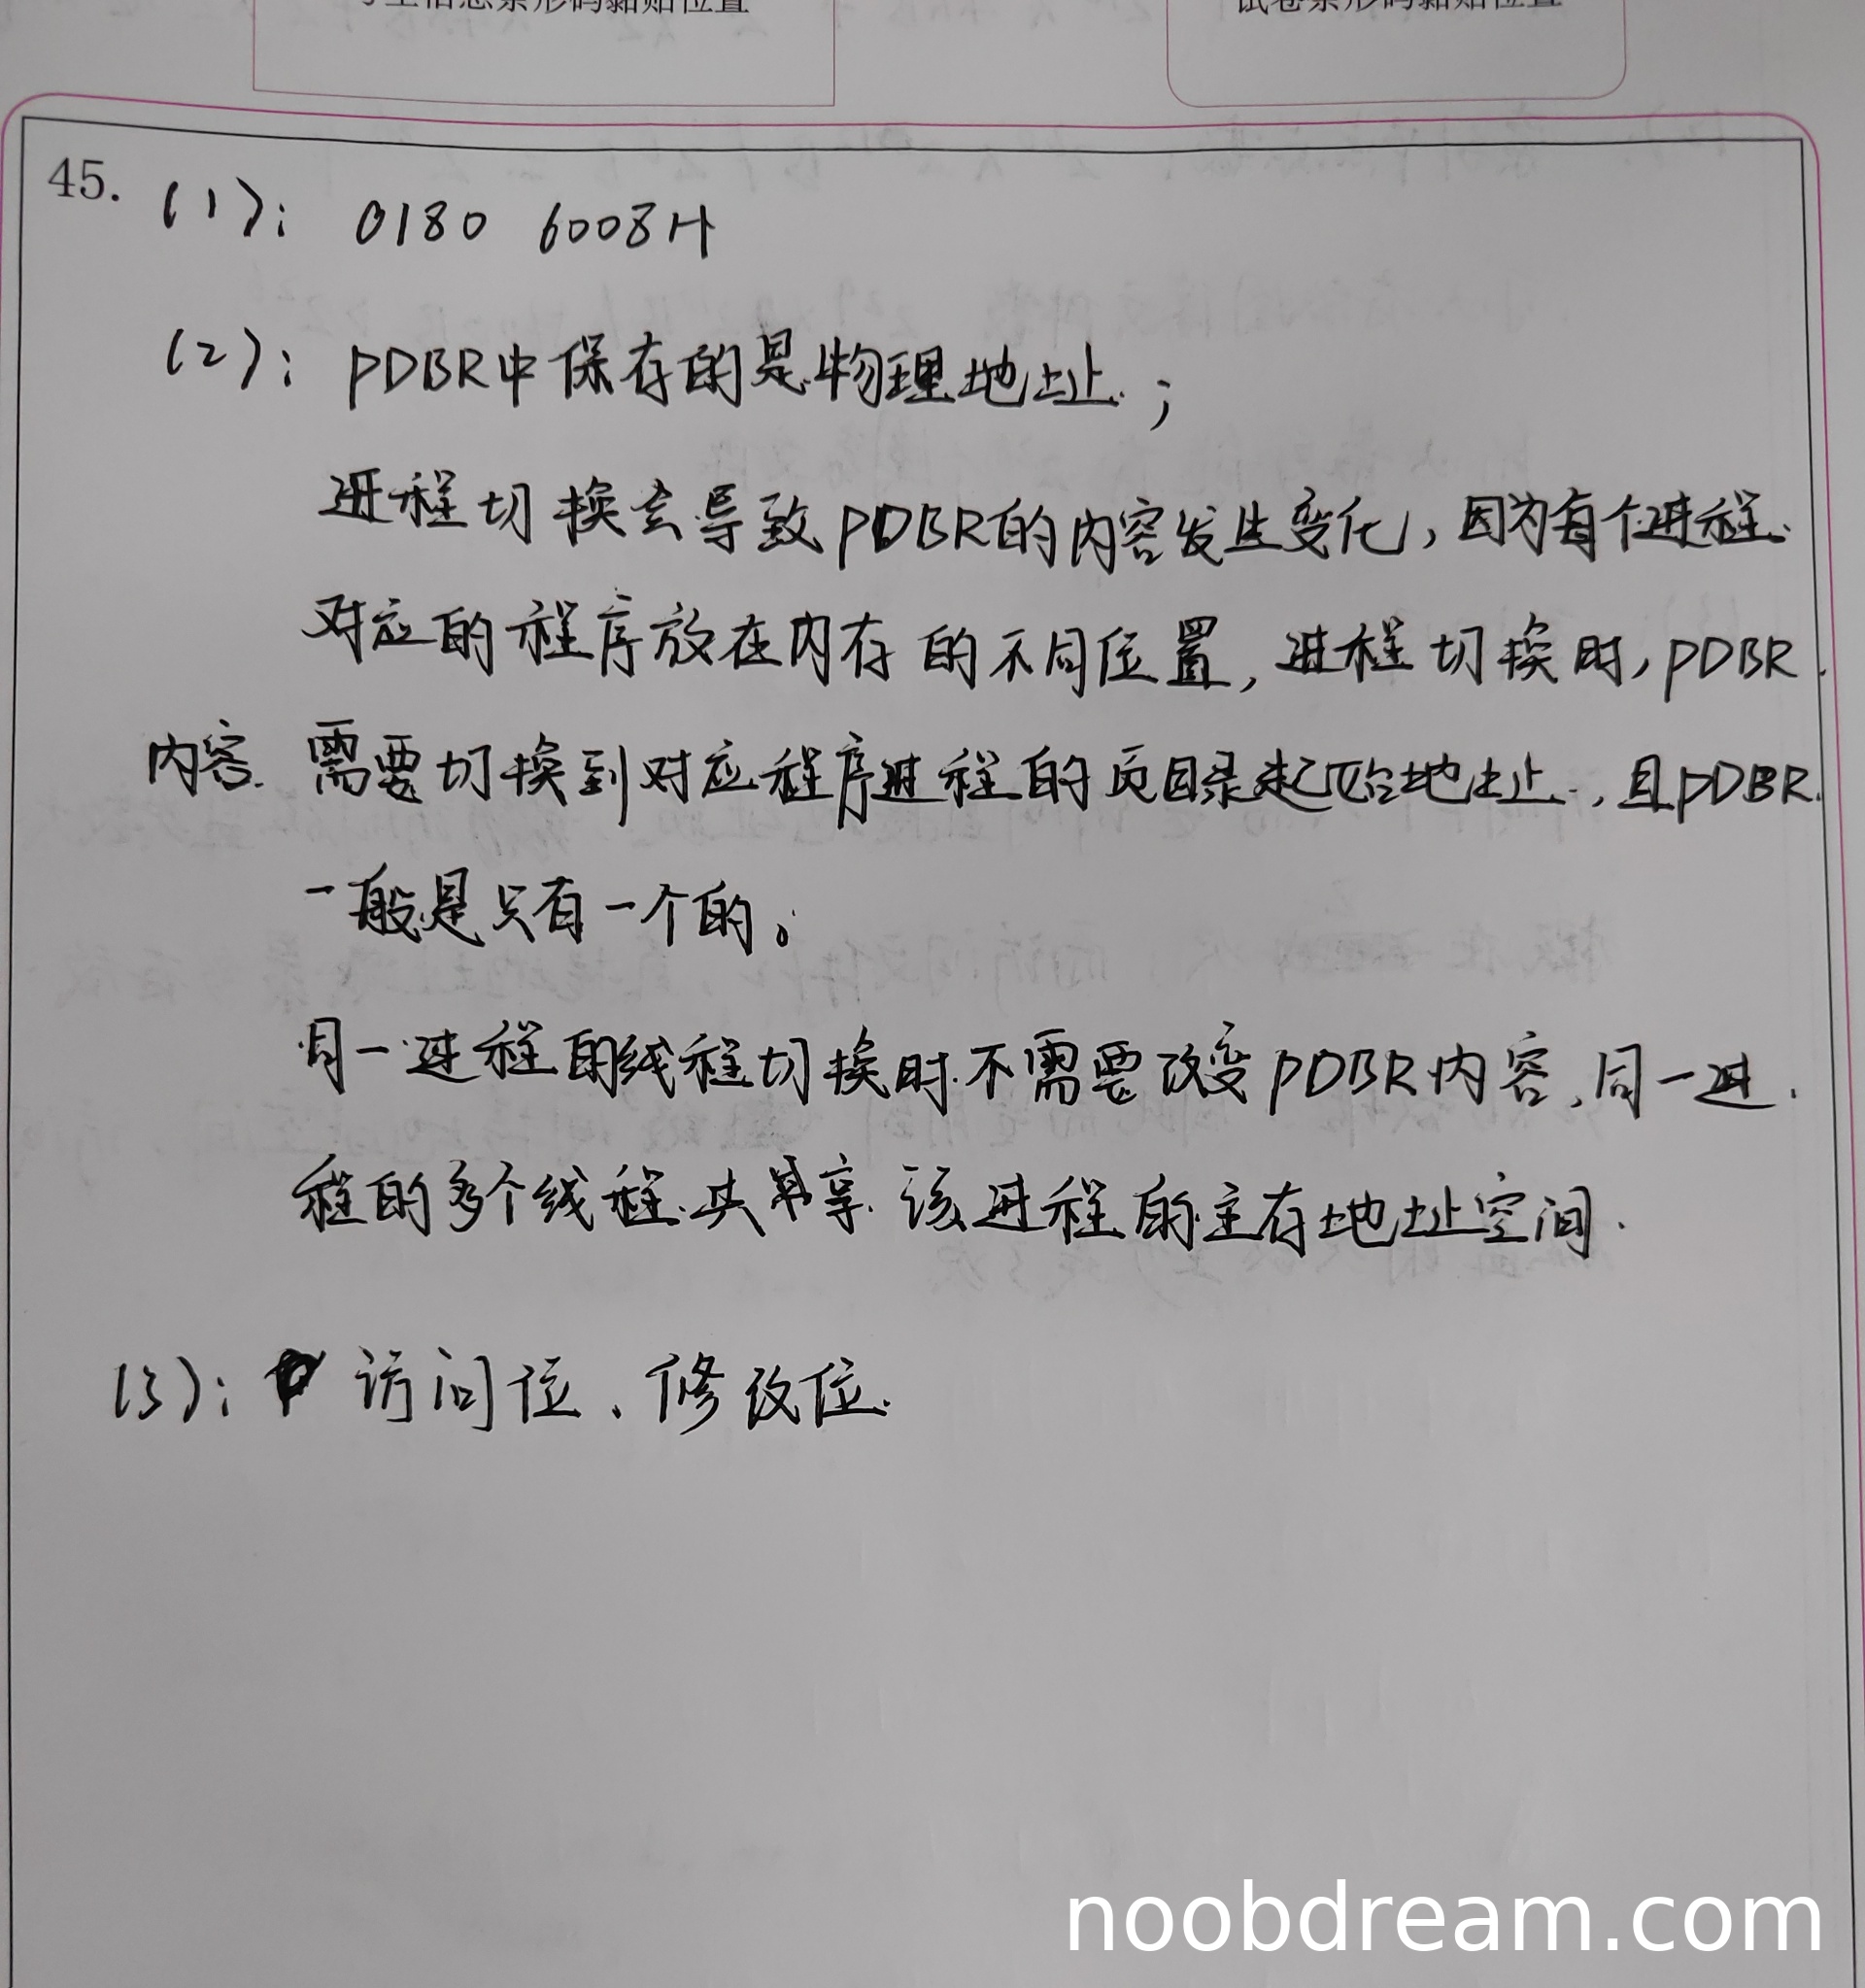 考生信息条形码黏贴位置
试卷条形码黏贴位置
45.
(1): 0180 6008H
(2): PDBR中保存的是物理地址;
进程切换会导致PDBR的内容发生变化,因为每个进程
对应的程序放在内存的不同位置,进程切换时,PDBR
内容需要切换到对应程序进程的页目录起始地址,且PDBR
一般是只有一个的。
同一进程的线程切换时不需要改变PDBR内容,同一进
程的多个线程共享该进程的主存地址空间.
(3): 访问位、修改位.
noobdream.com